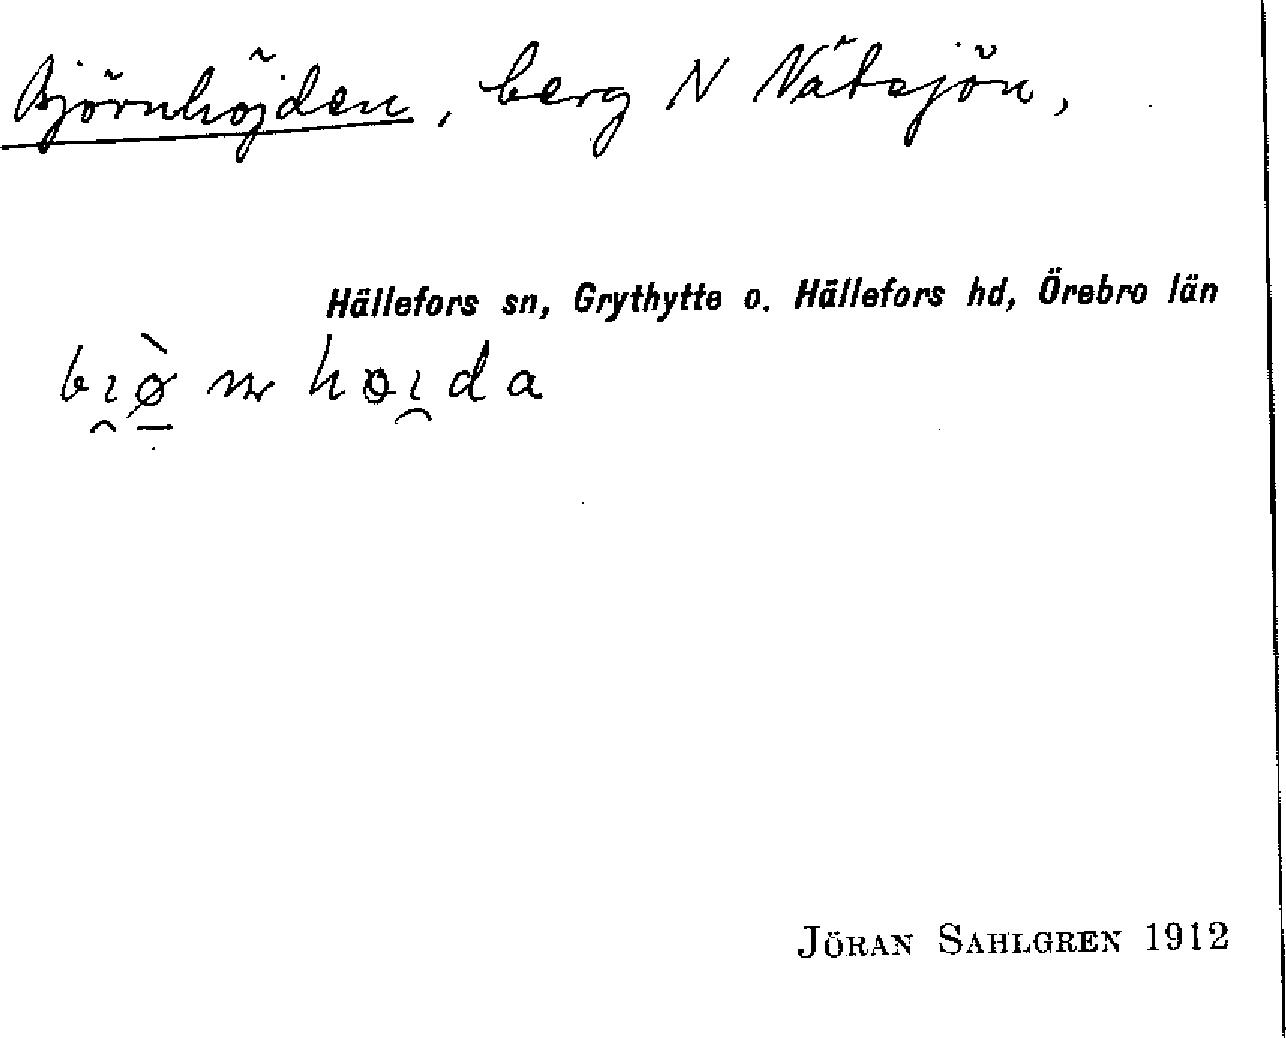 Björnhöjden, berg N Nätsjön,
Hällefors sn, Grythytte o. Hällefors hd, Örebro län
JÖRAN SAHLGREN 1912